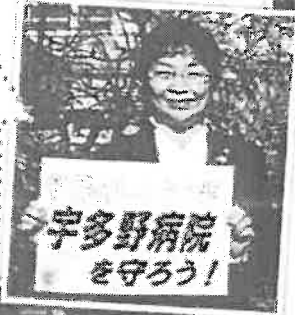 宇多野病院
を守ろう!